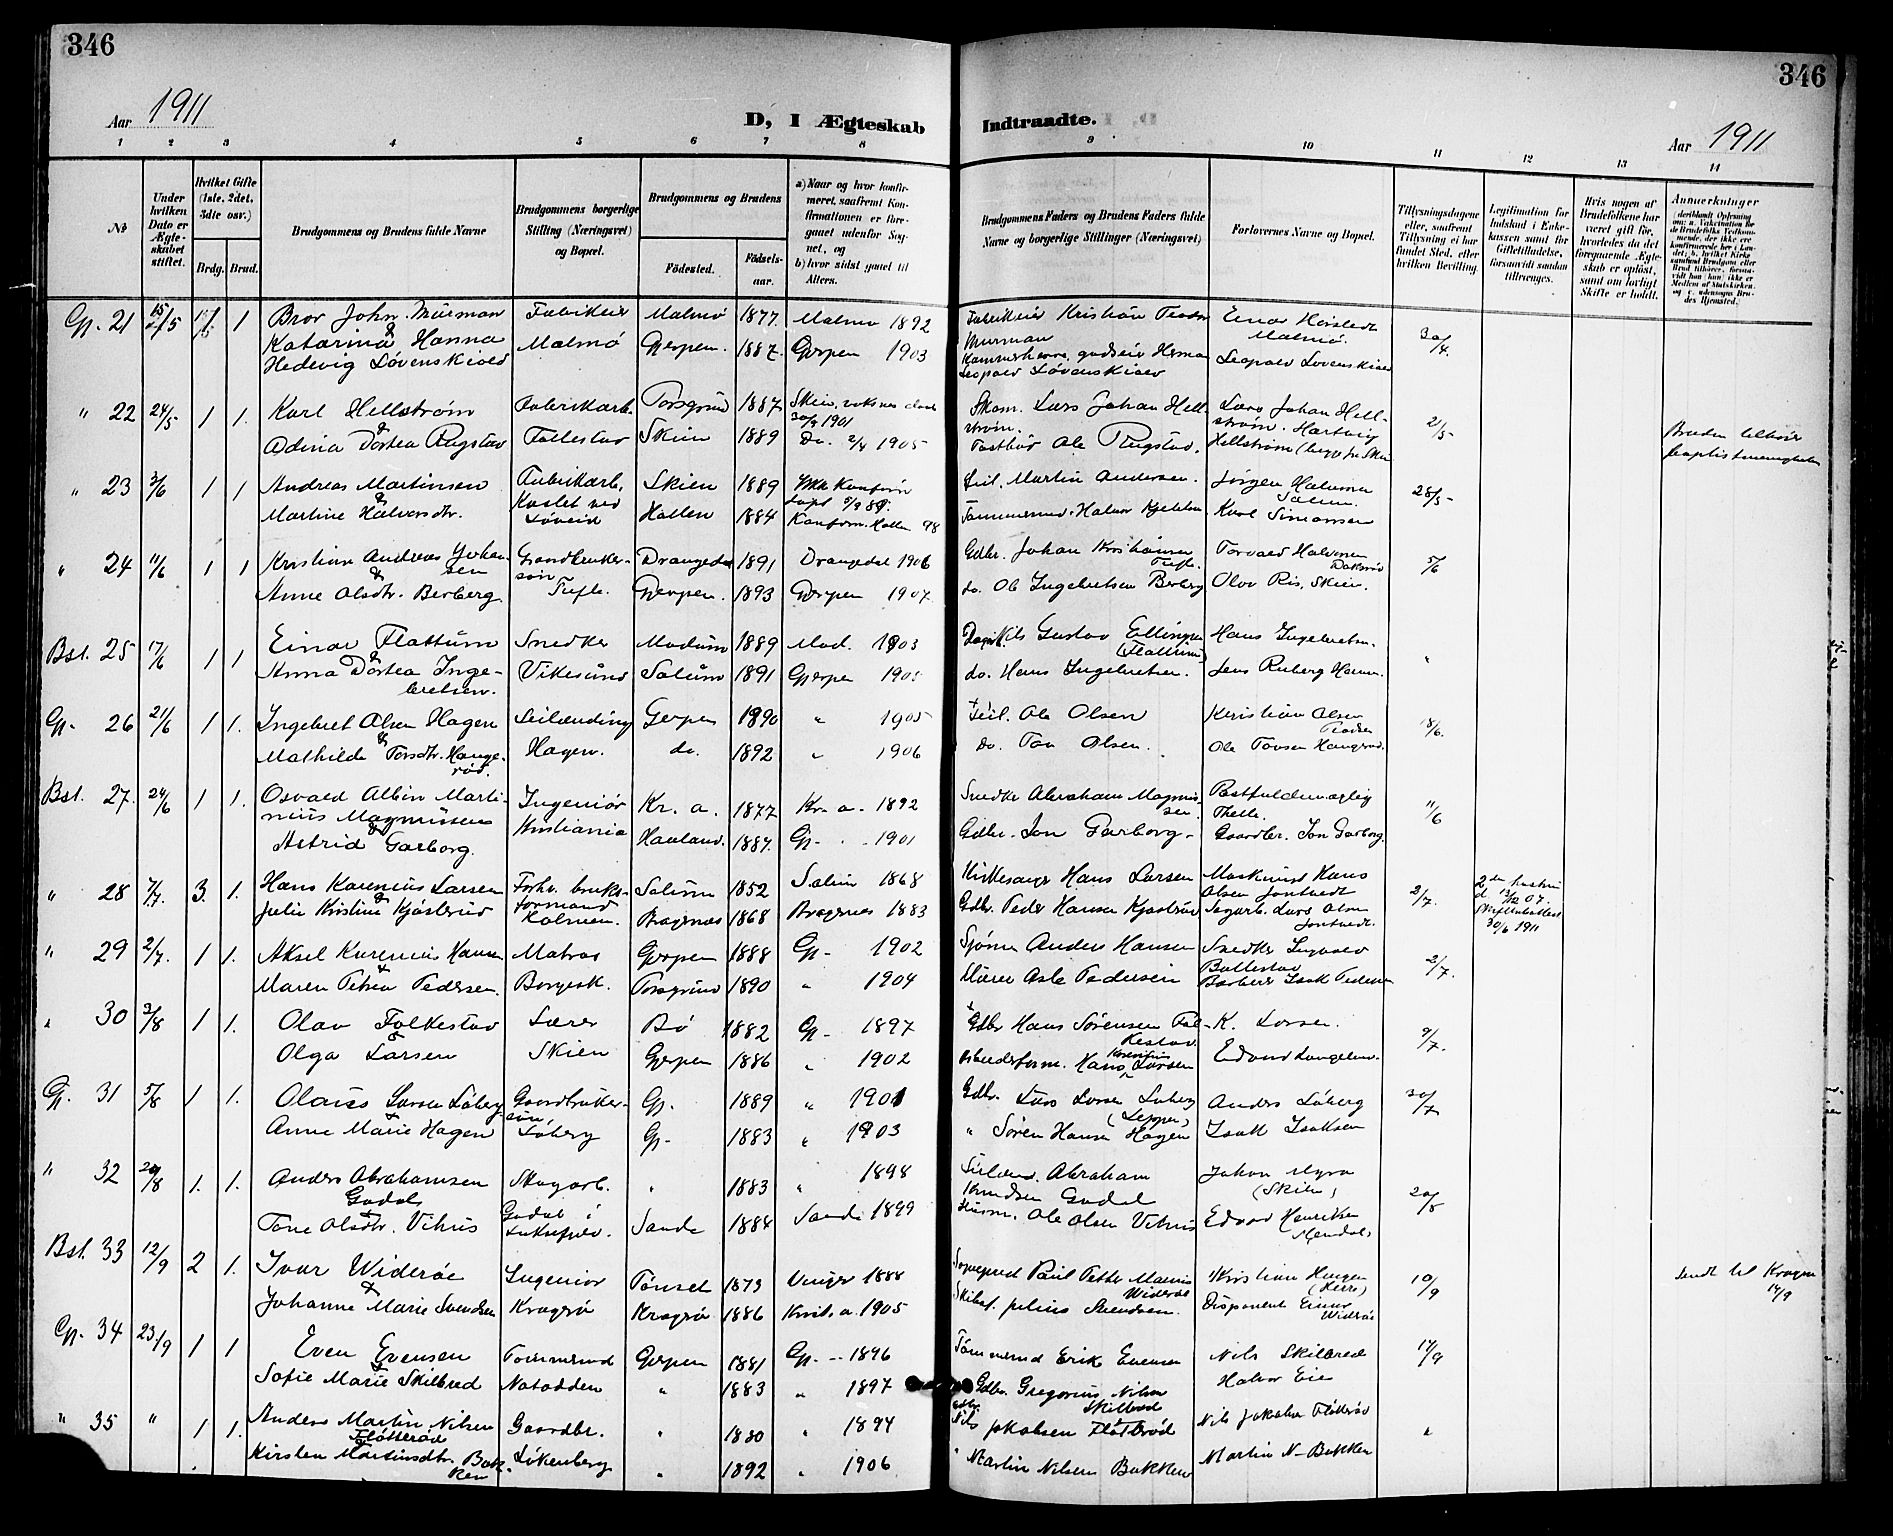 346
346
Aar 1911
D, I Ægteskab
Indtraadte.
Aar 1911
1 2 3 4 5 6 7 8 9 10 11 12 13 14
№
Under hvilken Dato er Ægteskabet stiftet.
Hvilket Gifte (1ste, 2det, 3die osv.)
Brdg. Brud.
Brudgommens og Brudens fulde Navne
Brudgommens borgerlige Stilling (Næringsvei) og Bopæl.
Brudgommens og Brudens
Fødested. Fødselsaar.
a) Naar og hvor konfirmeret, saafremt Konfirmationen er foregaaet udenfor Sognet, og
b) hvor sidst gaaet til Alters.
Brudgommens Faders og Brudens Faders fulde Navne og borgerlige Stillinger (Næringsvei)
Forlovernes Navne og Bopæl.
Tillysningsdagene eller, saafremt Tillysning ei har fundet Sted, efter hvilken Bevilling.
Legitimation for Indskud i Enkekassen samt for Giftetilladelse, forsaavidt saadan tiltrænges.
Hvis nogen af Brudefolkene har været gift før, hvorledes da det foregaaende Ægteskab er opløst, samt om lovligt Skifte er holdt.
Anmærkninger
Gp. 21 15/5 1 1 Bror John Murman Fabrikeier Malmø 1877 Malmø 1892 Fabrikeier Kristian Teodor Einar Hørstedt
& Katarina Hanna Malmø Gjerpen 1887 Gjerpen 1903 Murman Malmø. 30/4
Hedevig Løvenskiold Kammerherre, godseier Herman Leopold Løvenskiold
Leopold Løvenskiold
" 22 24/5 1 1. Karl Hellstrøm Fabrikarb. Porsgrund 1887 Skien, voksnes daab Skom. Lars Johan Hell- Lars Johan Hell-
& 30/9 1901 strøm. strøm. Hartvig 21/5
Adina Dortea Rugstad Follestad Skien 1889 Do. 2/4 1905 Postbud Ole Rugstad. Hellstrøm (begge fra Skien Bruden tilhører
baptistmenigheten
" 23 3/6 1 1 Andreas Martinsen Fabrikarb. Skien 1889 Ikke Konfirm Seil. Martin Andersen. Jørgen Halvorsen
& Martine Halvorsdtr. Kaslet ved Løveid Hollen 1884 Konfirm. Hollen 98 Tømmermd. Halvor Kjeldsen Karl Simonsen 28/5
" 24 11/6 1 1 Kristian Andreas Johansen Gaardbruker- Drangedal 1891 Drangedal 1906 Gdbr. Johan Kristiansen Torvald Halvorsen
& søn Tufte. Tufte. 5/6
Anne Olsdtr. Berberg Gjerpen. 1893 Gjerpen 1907. do. Ole Ingebretsen Berberg Olav Ris, Skien.
Bst. 25 17/6 1 1 Einar Flattum Snedker Modum 1889 Mod. 1903 Nils Gustav Ellingsen Hans Ingebretsen.
& (Flattum)
Anna Dortea Inge- Vikesund Solum 1891 Gjerpen 1905 do. Hans Ingebretsen. Jens Ruberg Hansen. "
bretsen.
Gp. 26 21/6 1 1. Ingebret Olsen Hagen Leilænding Gerpen 1890 " 1905 Seil. Ole Olsen Kristian Olsen
& 18/6.
Mathilde Torsdtr. Hauge- Hagen. do. 1892 " 1906 Do. Tov Olsen. Ole Tovsen Haugerød.
rød.
Bst. 27. 24/6 1 1. Osvald Albin Marti- Ingeniør Kr. a. 1877 Kr. a. 1892 Snedker Abraham Magnus- Postfuldmægtig
nius Magnussen sen. Thelle. 11/6
& Astrid Garborg. Kristiania Hauland. 1887. Gp. 1901 Gdbr. Jon Garborg. Gaardbr. Jon Garborg.
" 28 7/7. 3. 1. Hans Karenius Larsen Forhv. bruks- Solum 1852 Solum 1868 Kirkesanger Hans Larsen Maskinist Hans 2den hustru
& formand Olsen Jontvedt 2/7. d. 13/12 07.
Julie Kristine Kjøsterud Kolmen. Bragernes 1868 Bragernes 1883 Gdbr. Peder Hansen Kjøsterud Sagarb. Lars Olsen Skifteattest
Jontvedt. 30/6 1911
" 29 2/7. 1 1. Aksel Karenius Hansen Matros Gjerpen 1888 Gp. 1902 Sjømn Anders Hansen Snedker Ingvald
& Ballestad 2/7.
Maren Petrea Pedersen. Borgesk. Porsgrund 1890 " 1904 Murer Asle Pedersen Barberer Isak Pedersen
" 30 3/8 1 1. Olav Folkestad Lærer Bø 1882 Gp. 1897 Gdbr Hans Sørensen Fol- K. Larsen.
& kestad 9/7.
Olga Larsen Skien Gjerpen 1886 " 1902 Arbeidsform. Hans Karenius Larsen Edvard Langeland.
Gp. 31 5/8 1 1. Olaus Larsen Løberg Gaardbruker- Gp. 1889 " 1901 Gdbr. Lars Larsen Løberg Anders Løberg 30/7
& søn (Lepper)
Anne Marie Hagen Løberg Gp. 1883 " 1903 " Søren Hansen Hagen Isak Isaksen
" 32 20/8 1. 1. Anders Abrahamsen Skogarb. " 1883 " 1898 Leilænd. Abraham Johan Myra
Godal Knudsen Godal (Skien) 20/8
& Tone Olsdtr. Vihus Godal i Luksefjeld. Sande 1884 Sande 1899 Husm. Ole Olsen Vihus Edvard Henriksen
Bst. 33 12/9 2 1. Ivar Widerøe Ingeniør Tønset 1873 Vinger 1888 Sogneprest Paul Petter Magnus Kristian Haugen
& Widerøe (Herre) 10/9 Sendt til Kragerø
Johanne Marie Svendsen Kragerø Kragerø 1886 Krist. a. 1905 Skibsf. Julius Svendsen. Disponent Einar 14/9
Widerøe
Gp. 34 23/9 1 1 Even Evensen Tømmermd Gjerpen 1881 Gp. 1896 Tømmermd Erik Evensen Nils Skilbred 17/9
& Sofie Marie Skilbred Notodden " 1883 " 1897 Gdbr. Gregorius Nilsen Halvor Eie
Skilbred
" 35 " 1 1. Anders Martin Nilsen Gaardbr. " 1880 " 1894 Gdbr. Nils Jakobsen Fløtterød Nils Jakobsen Fløtterød
Fløtterød "
Kirsten Martinsdtr. Bak- Løkenberg " 1892 " 1906 " Martin Nilsen Bakken Martin N. Bakken
ken